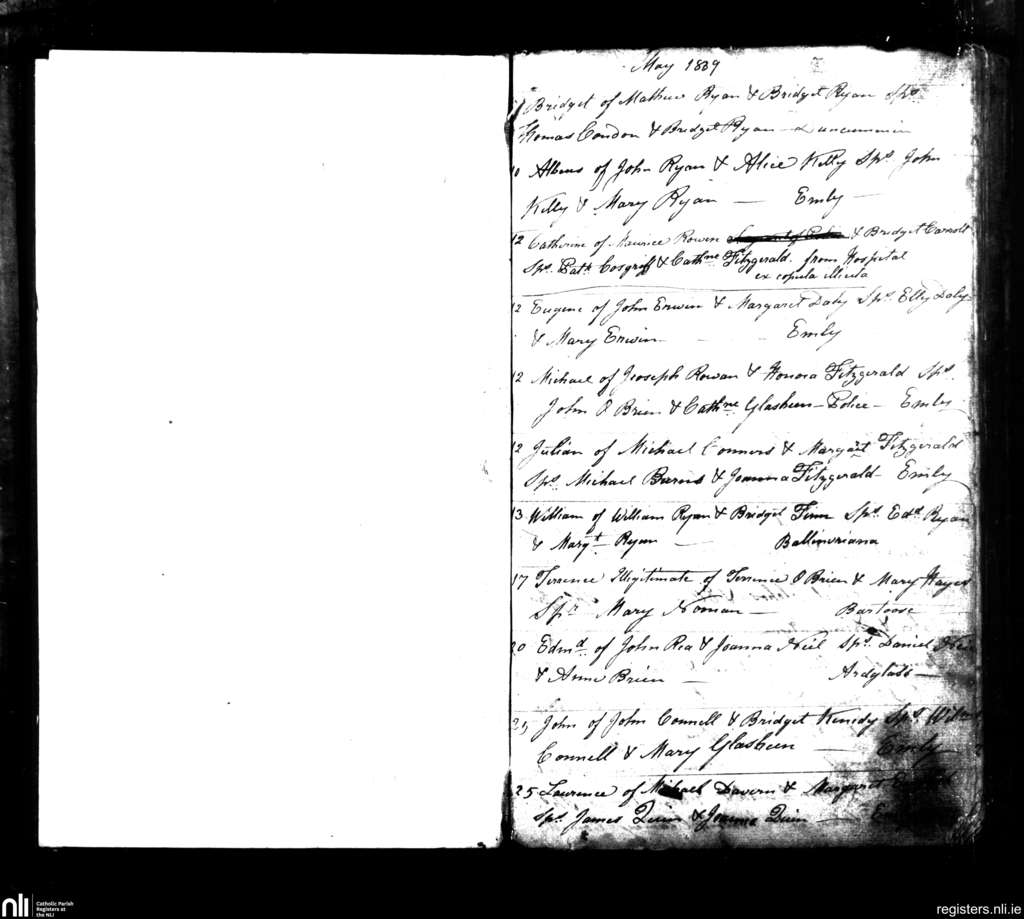 May 1839
Bridget of Mathew Ryan & Bridget Ryan Sps.
Thomas Condon & Bridget Ryan
10 of John Ryan & Alice Kelly Sps. John
Kelly & Mary Ryan — Emly —
12 Catherine of Maurice Rowen & Bridget
Sps. Patk. Cosgriff & Cathne Fitzgerald. from Hospital
ex copula illicita
12 Eugene of John Erwin & Margaret Daly Sps. Elly Daly
& Mary Erwin — Emly
12 Michael of Jioseph Rowan & Honora Fitzgerald Sps.
John O Brien & Cathne Glasheen — Police — Emly
12 Julian of Michael Connors & Margaret Fitzgerald
Sps. Michael Burns & Joanna Fitzgerald — Emly
13 William of William Ryan & Bridget Finn Sps. Edd. Ryan
& Margt. Ryan —
17 Terrence Illigitimate of Terrence O Brien & Mary Hayes
Spr. Mary Noonan —
20 Edmd. of John Rea & Joanna Neil Sps. Daniel
& Anne Brien — Ardglass —
25 John of John Connell & Bridget Kenedy Sps.
Connell & Mary Glasheen — Emly
25 Laurence of Michael Davern & Margaret
Sps. James Quin & Joanna Quin —
nli
Catholic Parish
Registers at
the NLI
registers.nli.ie